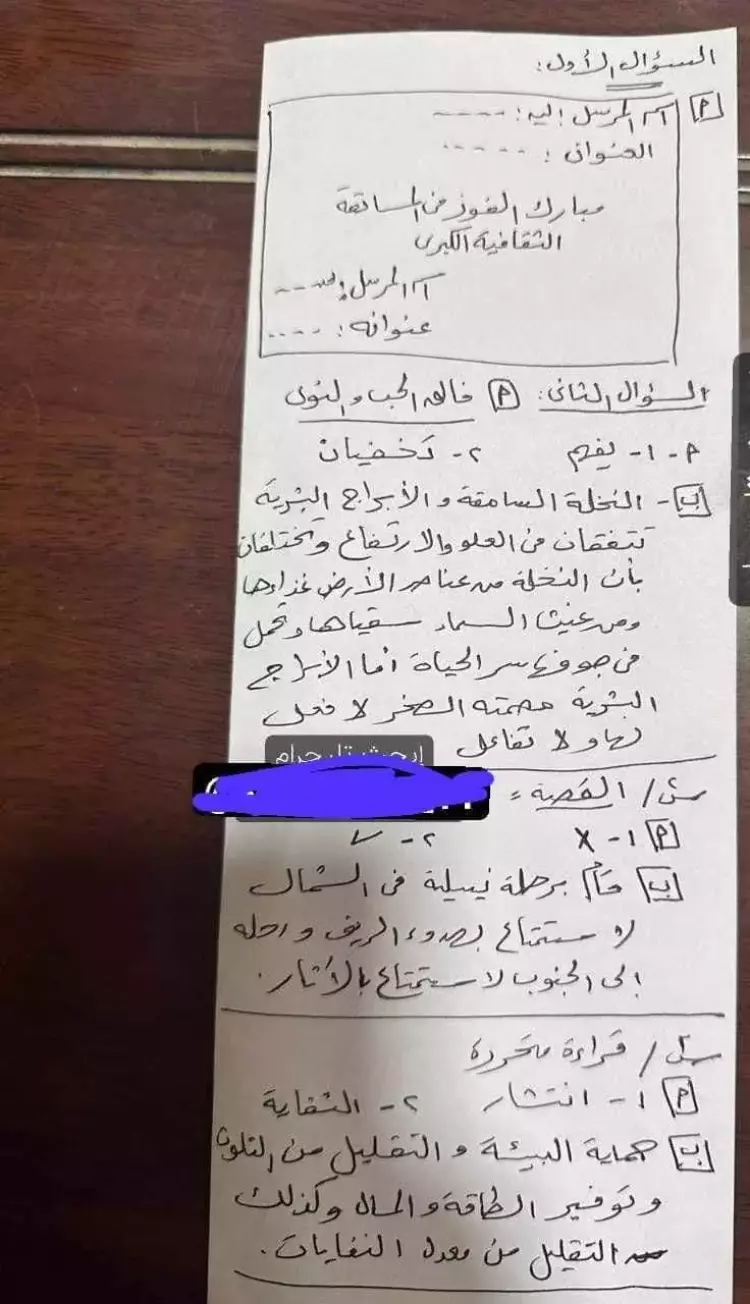 السؤال الأول:
أ اسم المرسل إليه: ----
العنوان: -----
مبارك الفوز في المسابقة
الثقافية الكبرى
اسم المرسل إليه ---
عنوانه: ----
السؤال الثاني: أ فالق الحب والنوى
أ- ١- يفهم ٢- تخفيان
ب- النخلة السامقة والأبراج البشرية
تتفقان في العلو والارتفاع وتختلفان
بأن النخلة من عناصر الأرض غذاءها
ومن غيث السماء سقياها وتحمل
في جوفها سر الحياة أما الأبراج
البشرية مصمته الصخر لا فعل
لها ولا تفاعل
س/ القصة:
أ ١- X ٢- ✓
ب قام برحلة نيلية في الشمال
لاستمتاع بهدوء الريف ورحله
إلى الجنوب لاستمتاع بالأثار.
قراءة متحررة
أ ١- انتشار ٢-
ب حماية البيئة والتقليل من التلوث
وتوفير الطاقة والمال وكذلك
التقليل من معدل النفايات.